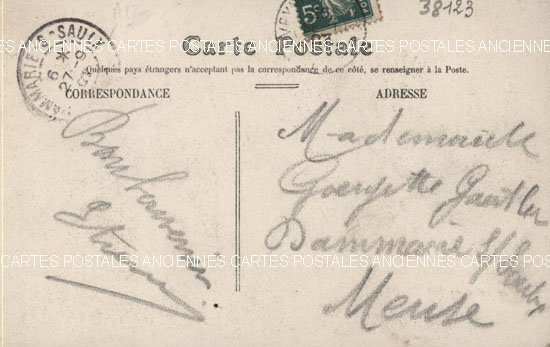 38123
5c
DAMMARIE-S-SAULX
6 *
27-9
Carte Postale
Quelques pays étrangers n'acceptant pas la correspondance de ce côté, se renseigner à la Poste.
CORRESPONDANCE
ADRESSE
Bon Souvenir
Mademoiselle
Georgette
Dammarie S/S
Meuse
ANCIENNES CARTES POSTALES ANCIENNES CARTES POSTALES ANCIENNES CARTES
CARTES POSTALES ANCIENNES CARTES POSTALES ANCIENNES CARTES POSTALES ANCIENNES